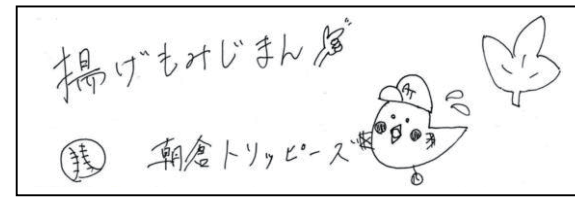 揚げもみじまん
朝倉トリッピーズ